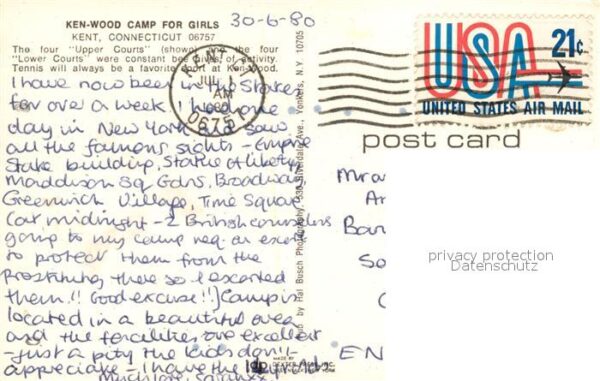 KEN-WOOD CAMP FOR GIRLS
KENT, CONNECTICUT 06757
The four "Upper Courts" (shown) and the four
"Lower Courts" were constant bee hives of activity.
Tennis will always be a favorite sport at Ken-Wood.
30-6-80
KENT
JUL 1
AM
1980
06757
USA 21c
UNITED STATES AIR MAIL
post card
I have now been in the States
for over a week. I had one
day in New York and saw
all the famous sights - Empire
State building, Statue of liberty,
Maddison Sq Gdns, Broadway
Greenwich Village, Time Square
(at midnight - 2 British counselers
going to my camp req. an escort
to protect them from the
Prostituting there so I escorted
them!! Good excuse!!) Camp is
located in a beautiful area
and the facilities are excellent
- just a pity the kids don't
appreciate - I have the 
Pub by Hal Busch Photography, 930 Riverdale Ave., Yonkers, N.Y. 10705
MADE BY
DEXTER PRESS, INC.
Mr a
Ar
Bar
So
C
EN
privacy protection
Datenschutz